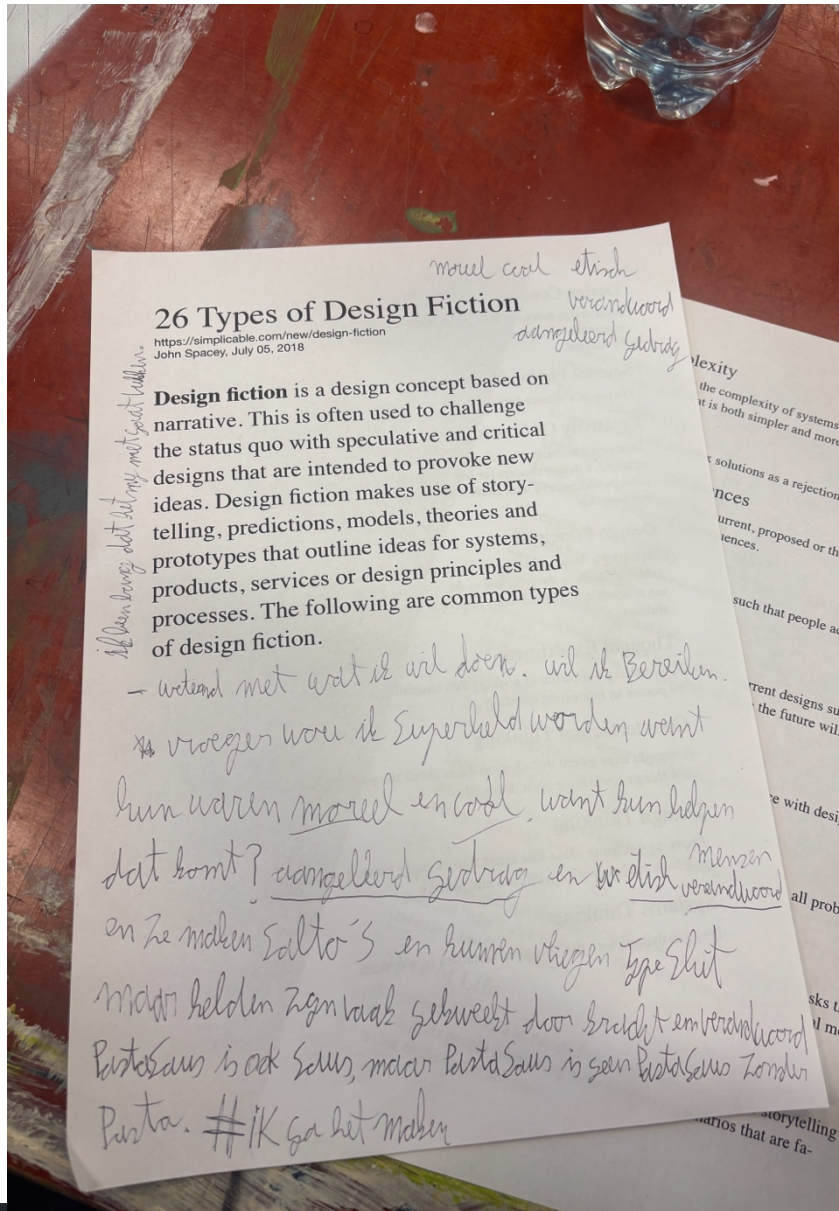 moreel cool etisch
verandwoord
aangeleerd gedrag
26 Types of Design Fiction
https://simplicable.com/new/design-fiction
John Spacey, July 05, 2018
Design fiction is a design concept based on
narrative. This is often used to challenge
the status quo with speculative and critical
designs that are intended to provoke new
ideas. Design fiction makes use of story-
telling, predictions, models, theories and
prototypes that outline ideas for systems,
products, services or design principles and
processes. The following are common types
of design fiction.
ik ben bang dat het my niet gaat lukken.
- wetend met wat ik wil doen. wil ik Bereiken.
vroeger wou ik Superheld worden want
hun waren moreel en cool, want hun helpen
mensen
dat komt? aangeleerd gedrag en etish verandwoord
en ze maken Salto's en kunnen vliegen Type Shit
maar helden zyn vaak gekweekt door kracht en verandwoord
PastaSaus is ook Saus, maar PastaSaus is geen PastaSaus Zonder
Pasta. #iK ga het maken
lexity
the complexity of systems
t is both simpler and more
solutions as a rejection
nces
urrent, proposed or th
uences.
such that people ac
rrent designs su
the future will
e with desi
all prob
sks t
l m
storytelling
narios that are fa-